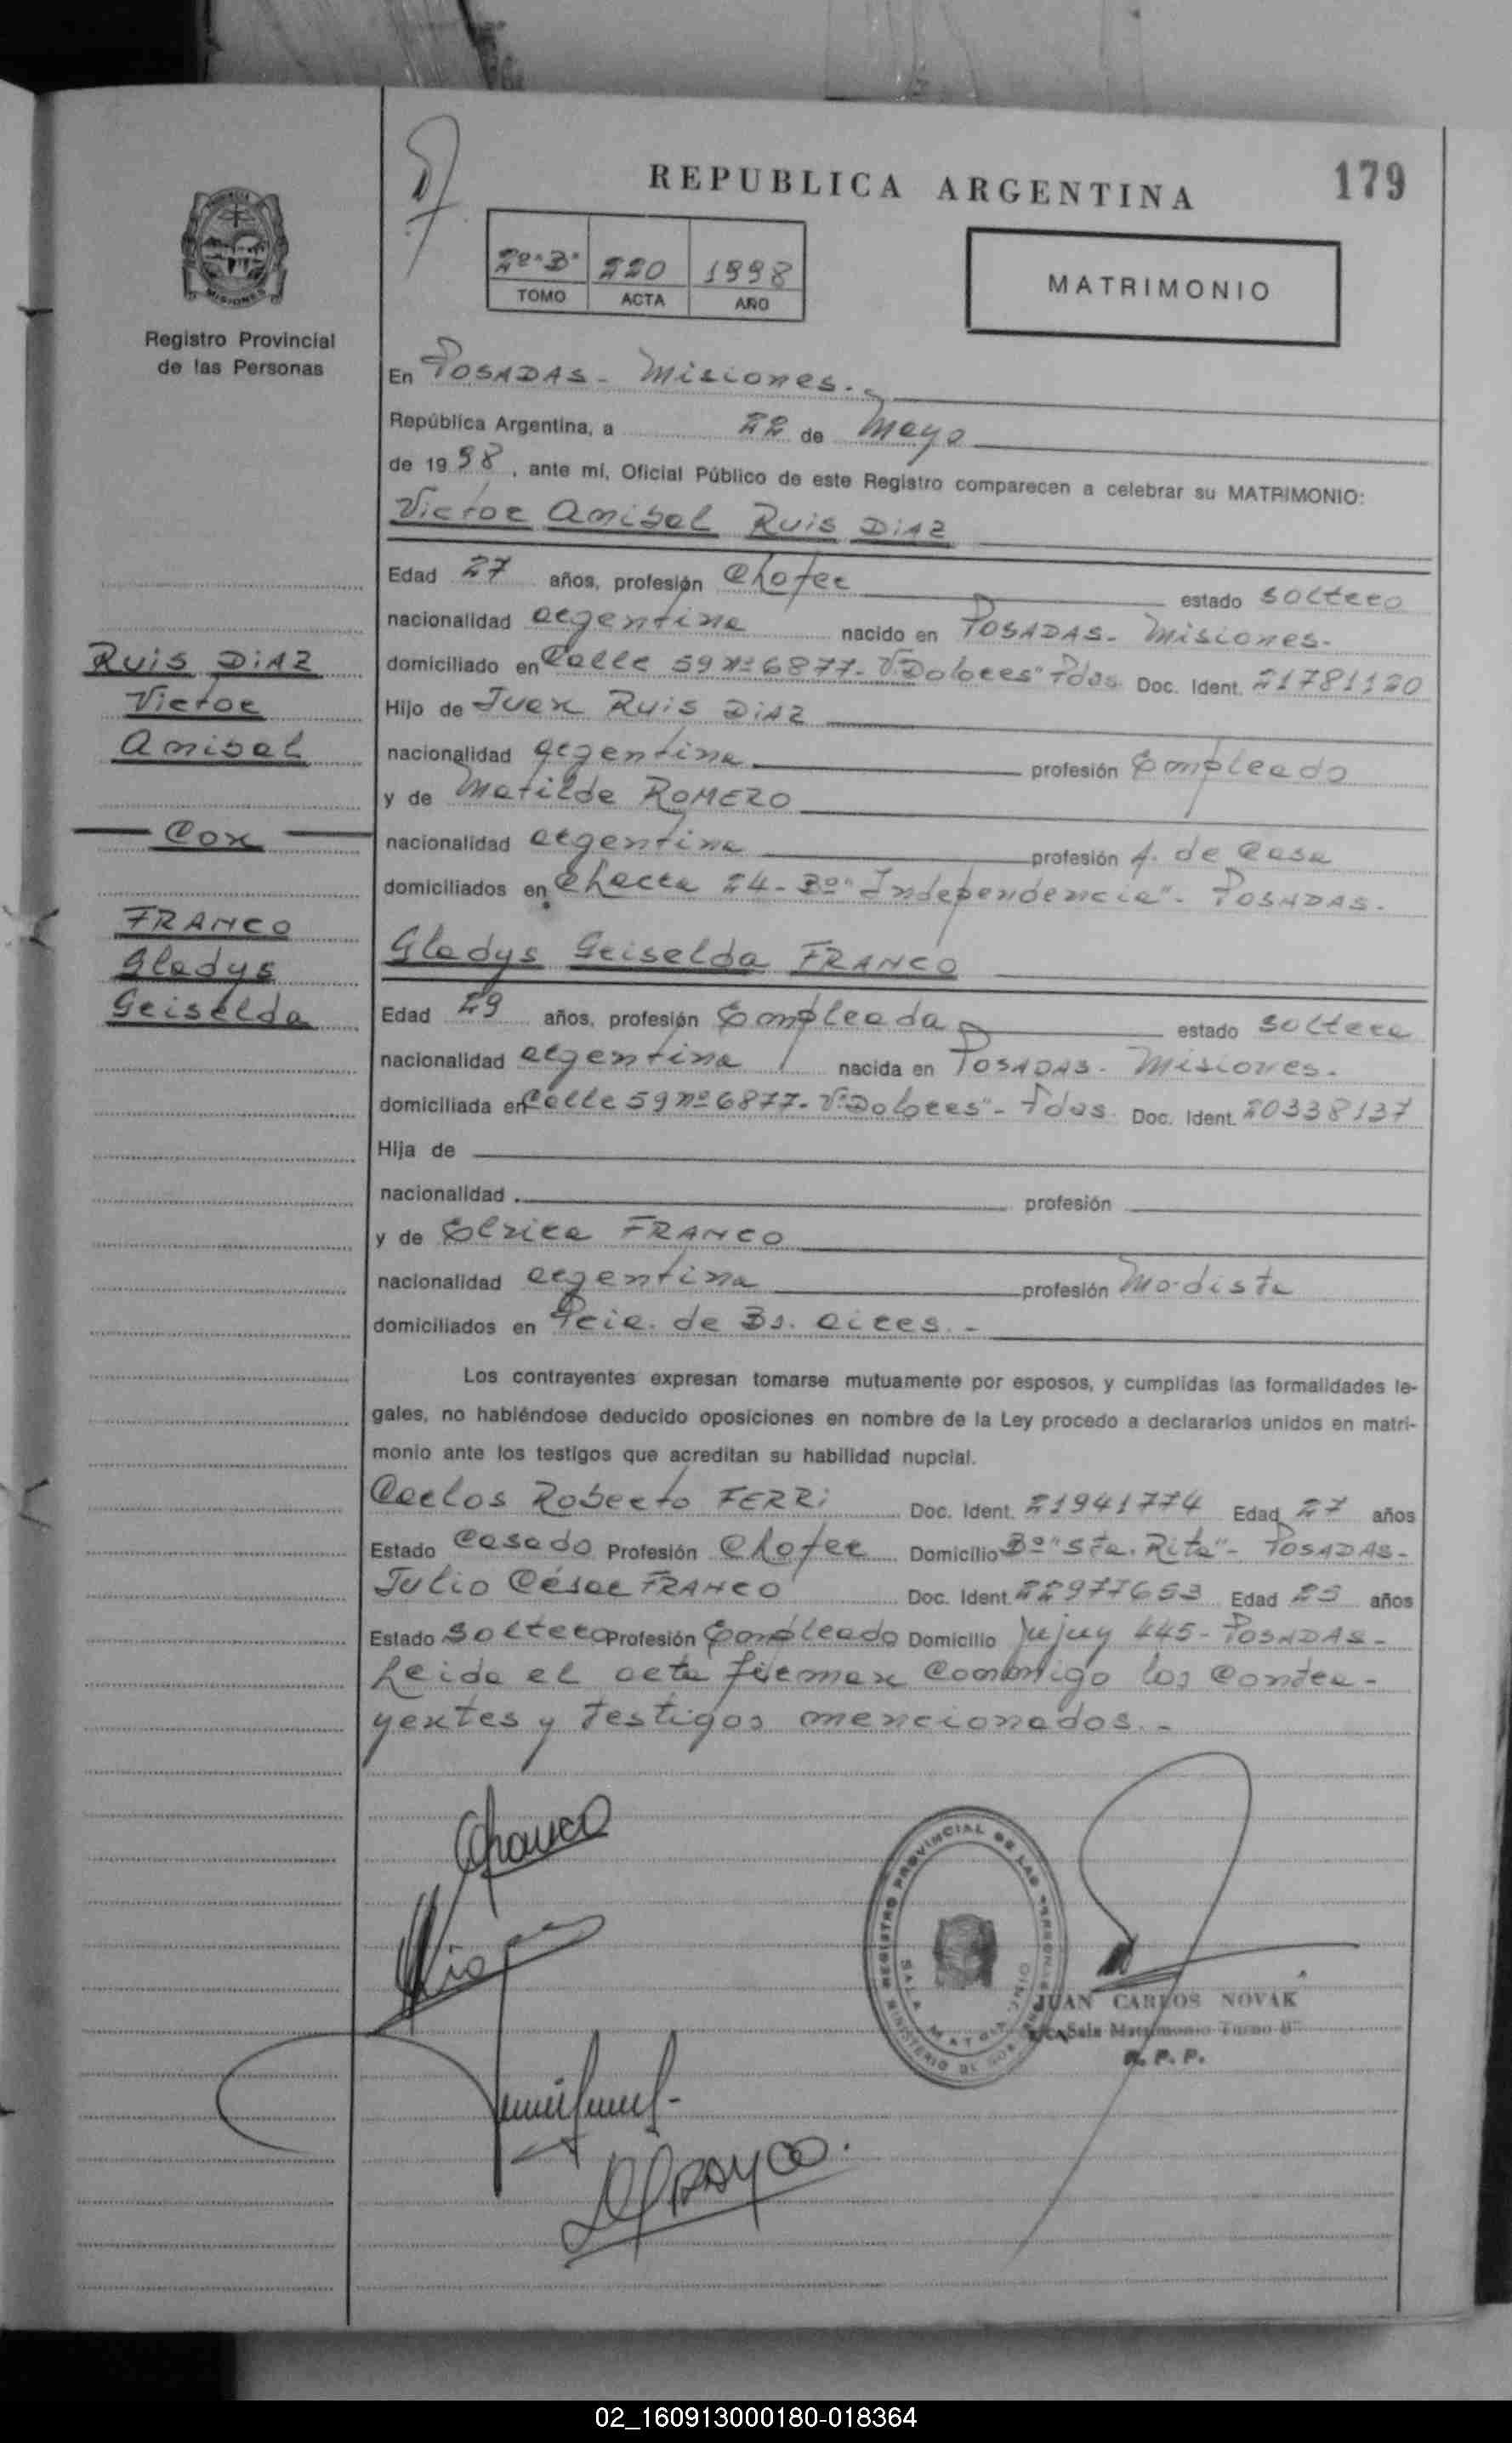 REPUBLICA ARGENTINA
179
2º "B" 220 1998
TOMO ACTA AÑO
MATRIMONIO
MISIONES
Registro Provincial
de las Personas
En POSADAS - Misiones.-
República Argentina, a 22 de Mayo
de 1998, ante mí, Oficial Público de este Registro comparecen a celebrar su MATRIMONIO:
Victor Anibal Ruis DiAZ
Edad 27 años, profesión Chofer estado soltero
nacionalidad argentina nacido en POSADAS - Misiones.
domiciliado en Calle 59 nº 6877- Vª Dolores" Pdas. Doc. Ident. 21781120
Hijo de Juan Ruis DiAZ
nacionalidad argentina profesión Empleado
y de Matilde ROMERO
nacionalidad argentina profesión A. de Casa
domiciliados en Chacra 24- Bº "Independencia" - POSADAS.
Gladys Griselda FRANCO
Edad 29 años, profesión Empleada estado soltera
nacionalidad argentina nacida en POSADAS - Misiones.
domiciliada en Calle 59 nº 6877- Vª Dolores" - Pdas. Doc. Ident. 20338137
Hija de
nacionalidad profesión
y de Elrica FRANCO
nacionalidad argentina profesión Modista
domiciliados en Pcia. de Bs. aires. -
Los contrayentes expresan tomarse mutuamente por esposos, y cumplidas las formalidades le-
gales, no habiéndose deducido oposiciones en nombre de la Ley procedo a declararlos unidos en matri-
monio ante los testigos que acreditan su habilidad nupcial.
Carlos Roberto FERRi Doc. Ident. 21941774 Edad 27 años
Estado Casado Profesión Chofer Domicilio Bº "Sta. Rita" - POSADAS-
Julio César FRANCO Doc. Ident. 22977653 Edad 25 años
Estado Soltero Profesión Empleado Domicilio Jujuy 445 - POSADAS -
Leida el acta firman conmigo los contra-
yentes y testigos mencionados. -
Ruis DiAZ
Victor
Anibal
Con
FRANCO
Gladys
Griselda
REGISTRO PROVINCIAL DE LAS PERSONAS
JUAN CARLOS NOVAK
Sala Matrimonio Turno
R. P. P.
02_160913000180-018364